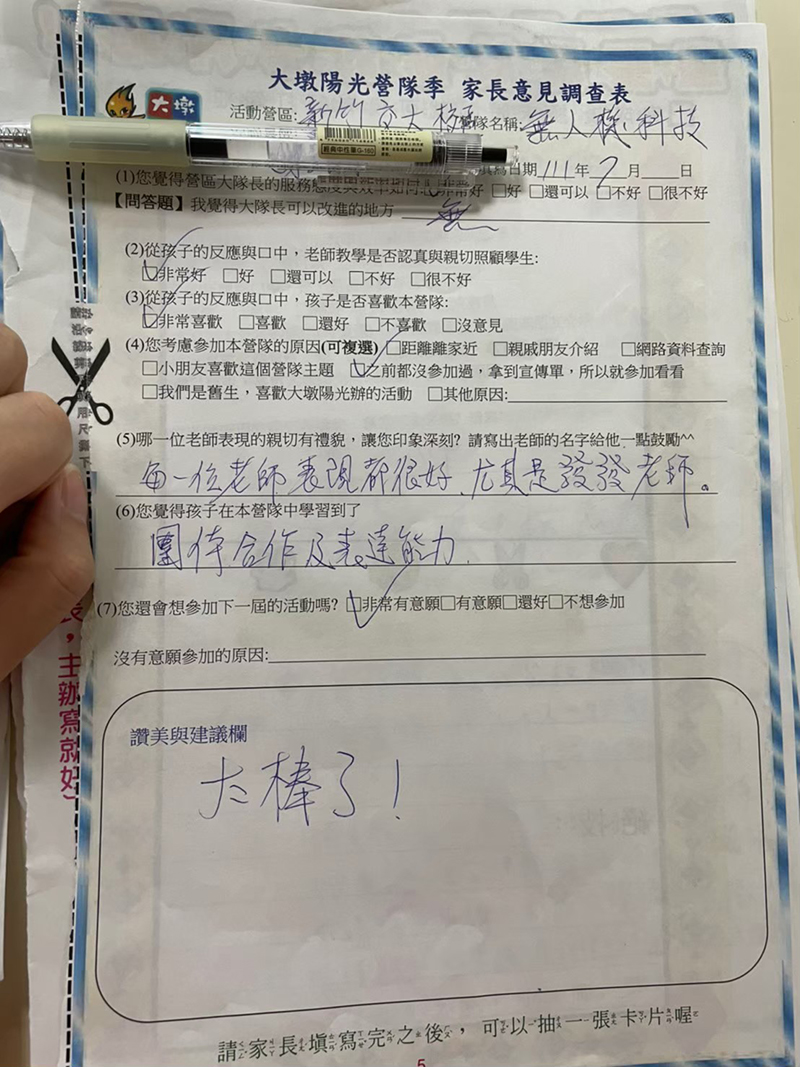 大墩陽光營隊季 家長意見調查表
大墩
活動營區: 新竹交大校區 營隊名稱: 無人機科技
填寫日期 111 年 7 月 日
(1)您覺得營區大隊長的服務態度與效率如何 非常好 □好 □還可以 □不好 □很不好
【問答題】我覺得大隊長可以改進的地方 無
(2)從孩子的反應與口中,老師教學是否認真與親切照顧學生:
☑非常好 □好 □還可以 □不好 □很不好
(3)從孩子的反應與口中,孩子是否喜歡本營隊:
☑非常喜歡 □喜歡 □還好 □不喜歡 □沒意見
(4)您考慮參加本營隊的原因(可複選) □距離離家近 □親戚朋友介紹 □網路資料查詢
□小朋友喜歡這個營隊主題 ☑之前都沒參加過,拿到宣傳單,所以就參加看看
□我們是舊生,喜歡大墩陽光辦的活動 □其他原因:
(5)哪一位老師表現的親切有禮貌,讓您印象深刻? 請寫出老師的名字給他一點鼓勵^^
每一位老師表現都很好、尤其是發發老師。
(6)您覺得孩子在本營隊中學習到了
團侍合作及表達能力.
(7)您還會想參加下一屆的活動嗎? ☑非常有意願□有意願□還好□不想參加
沒有意願參加的原因:
讚美與建議欄
太棒了!
請家長填寫完之後,可以抽一張卡片喔
5
長,主辦寫就好)
經典中性筆G-160